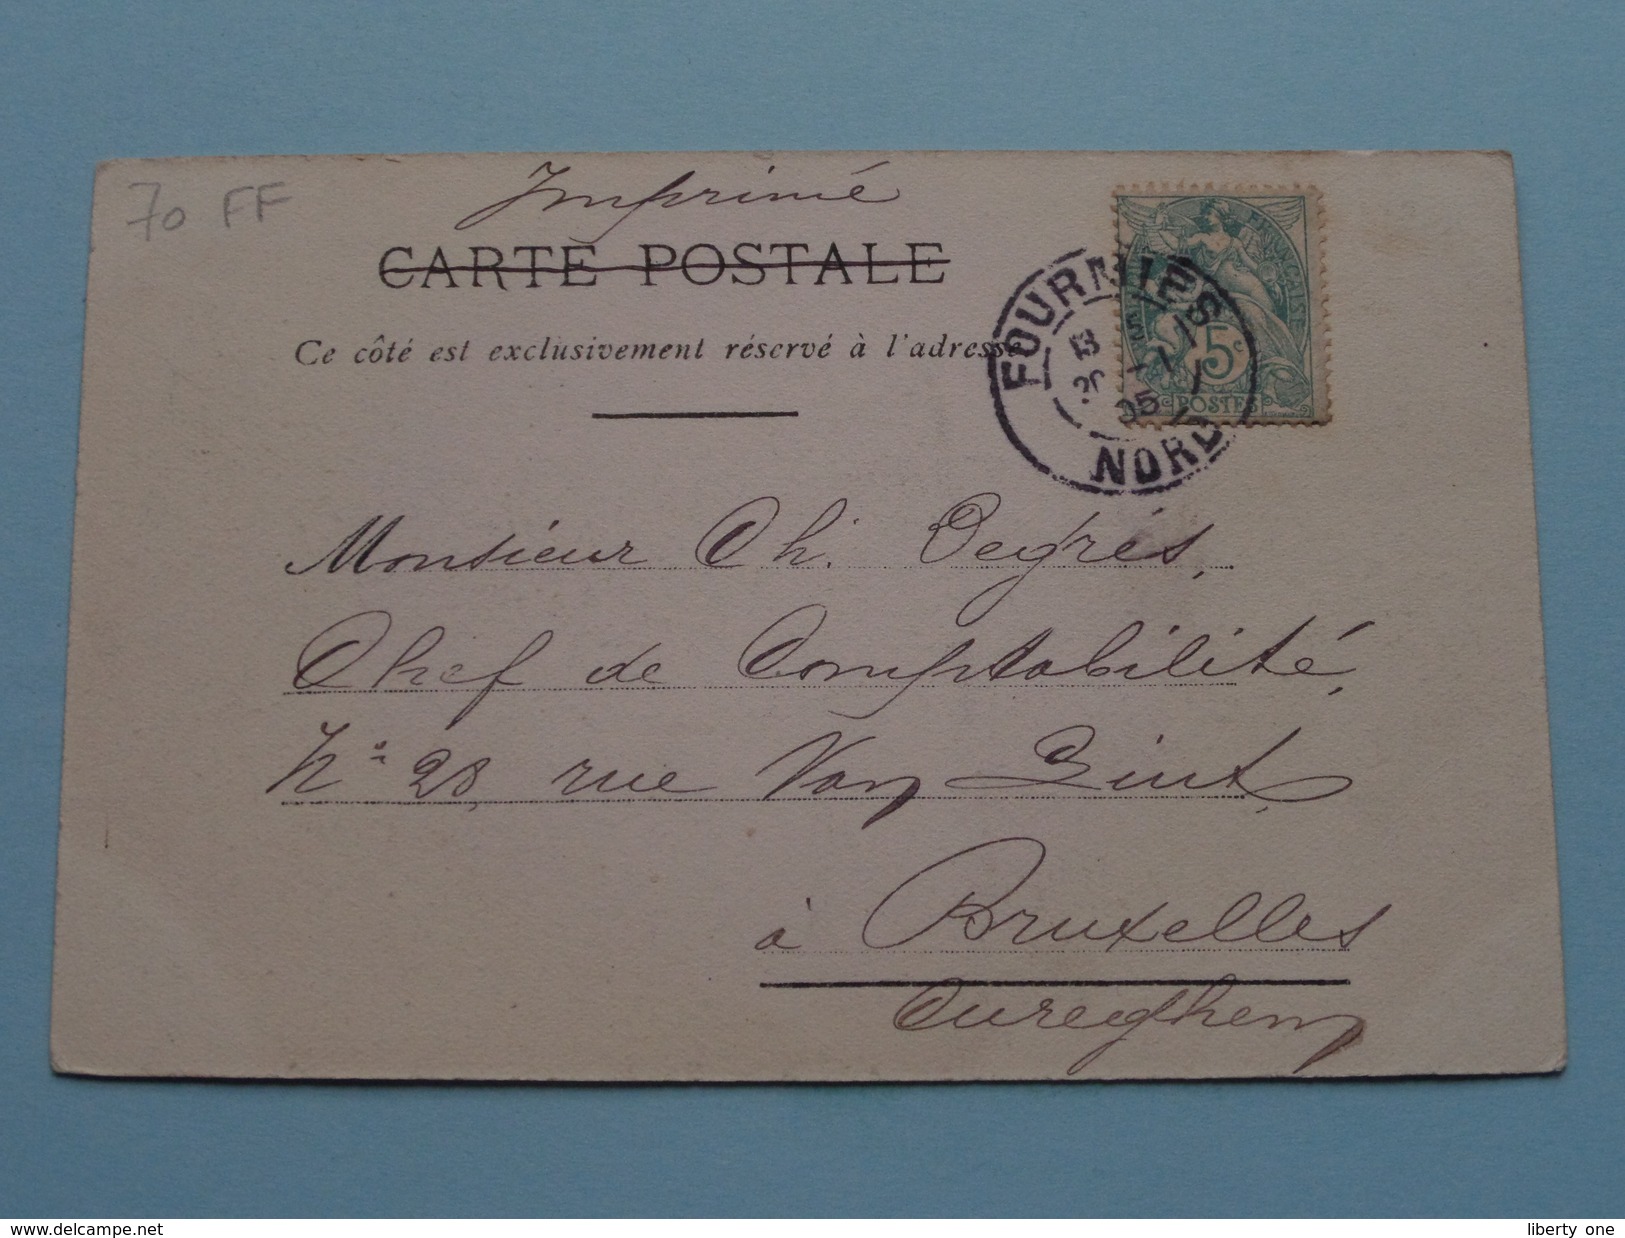 Imprimé
70 FF
CARTE POSTALE
Ce côté est exclusivement réservé à l'adresse
FOURMIES
NORD
5c
POSTES
Monsieur Ch. Degrés,
Chef de Comptabilité,
No 28, rue Van Lint,
à Bruxelles
Cureghem
www.delcampe.net
liberty_one